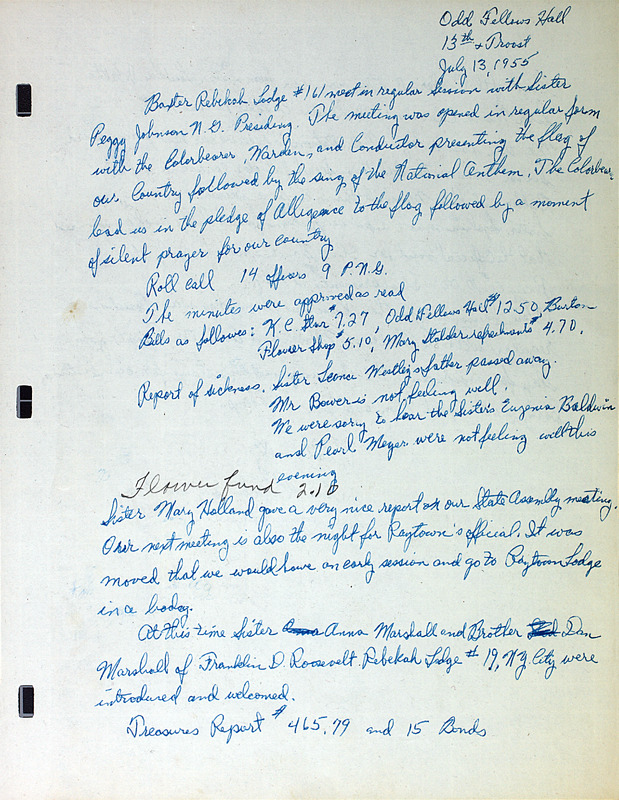 Odd Fellows Hall
13th & Troost
July 13, 1955
Baxter Rebekah Lodge #161 meet in regular session with Sister
Peggy Johnson N.G. Presiding. The meeting was opened in regular form
with the Colorbearer, Warden, and Conductor presenting the flag of
our Country followed by the sing of the National Anthem. The Colorbearer
lead us in the pledge of Alligence to the flag followed by a moment
of silent prayer for our country
Roll call 14 officers 9 P.N.G.
The minutes were approved as read
Bills as followes: K.C. Star $7.27, Odd Fellows Hall $12.50, Burton
Flower Shop $5.10, Mary Stalder refreshments $4.70.
Report of sickness. Sister Leona Westley's father passed away.
Mr Bower is not feeling well.
We were sorry to hear the Sister's Eugenia Baldwin
and Pearl Meyer were not feeling well this
evening
Flower fund 2.10
Sister Mary Holland gave a very nice report on our State Assembly meeting.
Our next meeting is also the night for Raytown's official. It was
moved that we would have an early session and go to Raytown Lodge
in a boday.
At this time Sister Anna Marshall and Brother Dan
Marshall of Franklin D. Roosevelt Rebekah Lodge #19, N.Y. City were
introduced and welcomed.
Treasures Report $465.79 and 15 Bonds